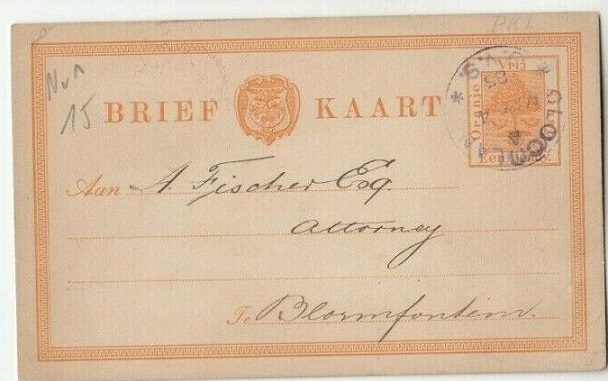 PKL
Nv1
15
BRIEF KAART
Oranje Vrij
Een
Aan A. Fischer Esq.
Attorney
Te Bloemfontein.